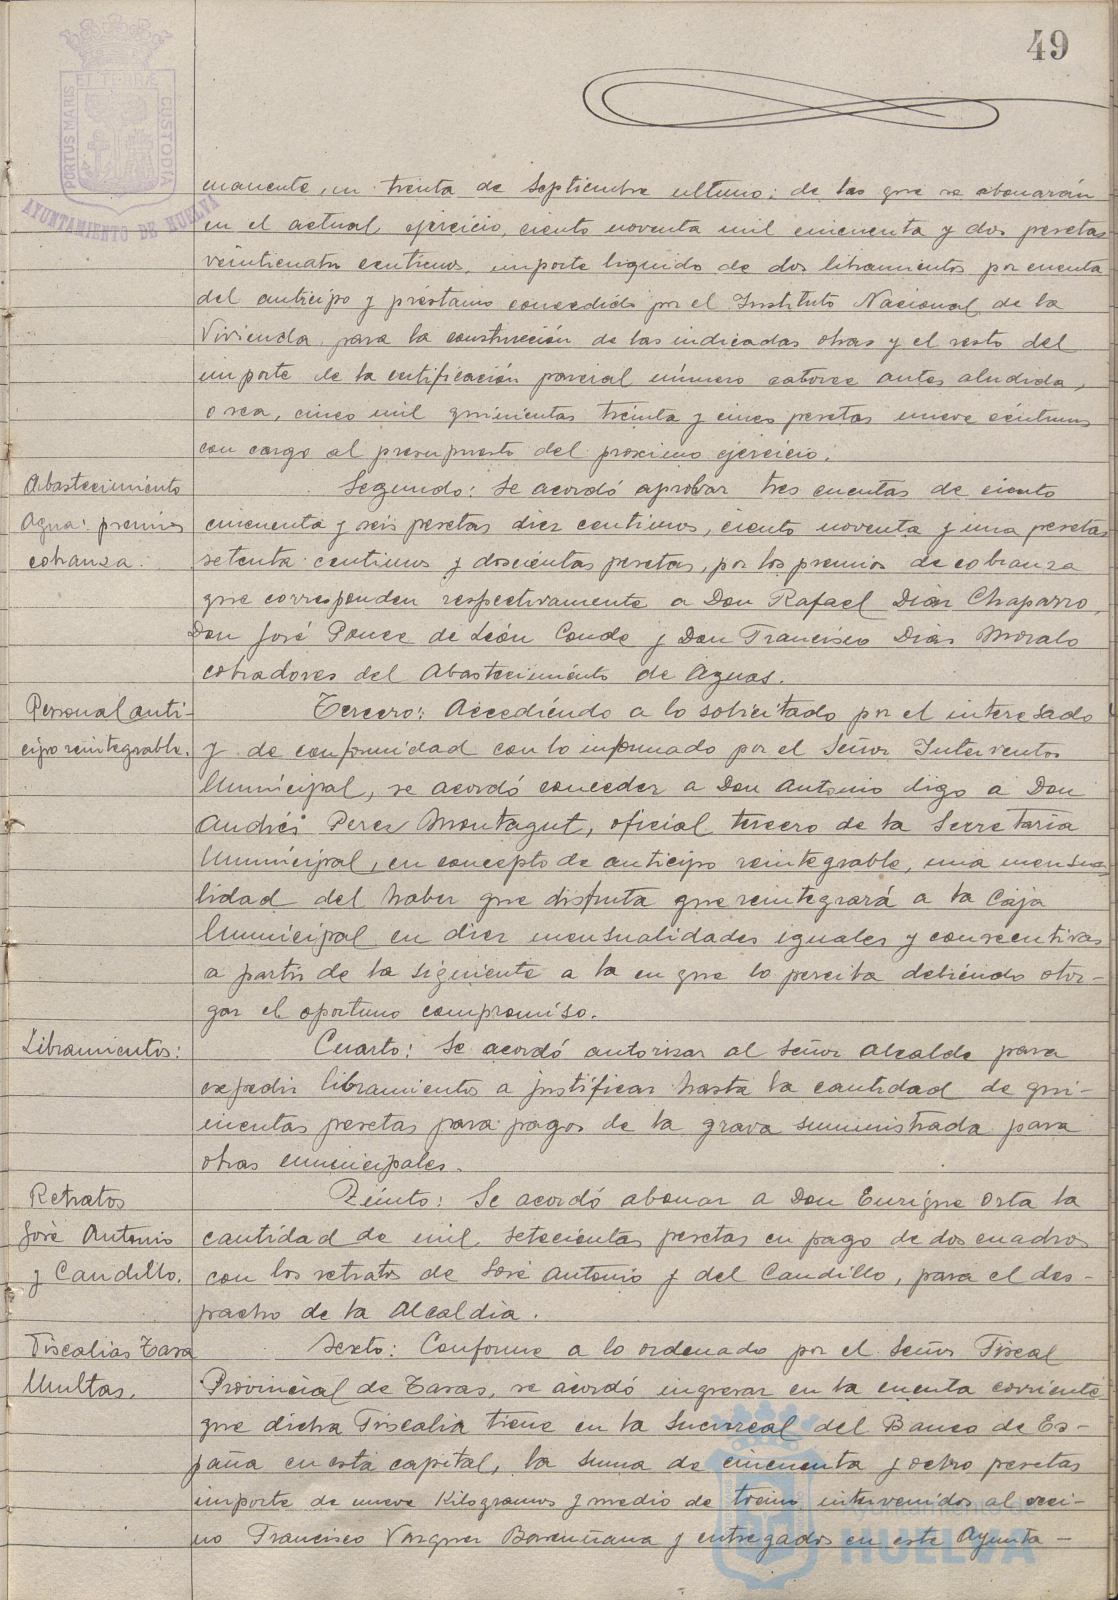 49
PORTUS MARIS ET TERRÆ CUSTODIA
AYUNTAMIENTO DE HUELVA
manente, en treinta de Septiembre ultimo; de las que se abonarán
en el actual ejercicio, ciento noventa mil cincuenta y dos pesetas
veinticuatro centimos, importe liquido de dos libramientos por cuenta
del anticipo y préstamo concedido por el Instituto Nacional de la
Vivienda para la construcción de las indicadas obras y el resto del
importe de la certificación parcial número catorce antes aludida,
o sea, cinco mil quinientas treinta y cinco pesetas nueve céntimos
con cargo al presupuesto del proximo ejercicio.
Abastecimiento
Agua: premios
cobranza.
Segundo: Se acordó aprobar tres cuentas de ciento
cincuenta y seis pesetas diez centimos, ciento noventa y una pesetas
setenta centimos y doscientas pesetas, por los premios de cobranza
que corresponden respectivamente a Don Rafael Diaz Chaparro,
Don José Ponce de León Conde y Don Francisco Dias Morales
cobradores del Abastecimiento de Aguas.
Personal anti-
cipo reintegrable.
Tercero: Accediendo a lo solicitado por el interesado
y de conformidad con lo informado por el Señor Interventor
Municipal, se acordó conceder a Don Antonio digo a Don
Andrés Perez Montagut, oficial tercero de la Secretaria
Municipal, en concepto de anticipo reintegrable, una mensua
lidad del haber que disfruta que reintegrará a la Caja
Municipal en diez mensualidades iguales y consecutivas
a partir de la siguiente a la en que lo perciba debiendo otor-
gar el oportuno compromiso.
Libramientos:
Cuarto: Se acordó autorizar al Señor Alcalde para
expedir libramientos a justificar hasta la cantidad de qui-
nientas pesetas para pagos de la grava suministrada para
obras municipales.
Retratos
José Antonio
y Caudillo.
Quinto: Se acordó abonar a Don Enrique Orta la
cantidad de mil setecientas pesetas en pago de dos cuadros
con los retratos de José Antonio y del Caudillo, para el des-
pacho de la Alcaldia.
Fiscalias Tasa
Multas.
Sexto: Conforme a lo ordenado por el Señor Fiscal
Provincial de Tasas, se acordó ingresar en la cuenta corriente
que dicha Fiscalia tiene en la Sucursal del Banco de Es-
paña en esta capital, la suma de cincuenta y ocho pesetas
importe de nueve Kilogramos y medio de intervenidos al veci-
no Francisco Vazquez y entregados en este Ayunta-
Ayuntamiento de
HUELVA